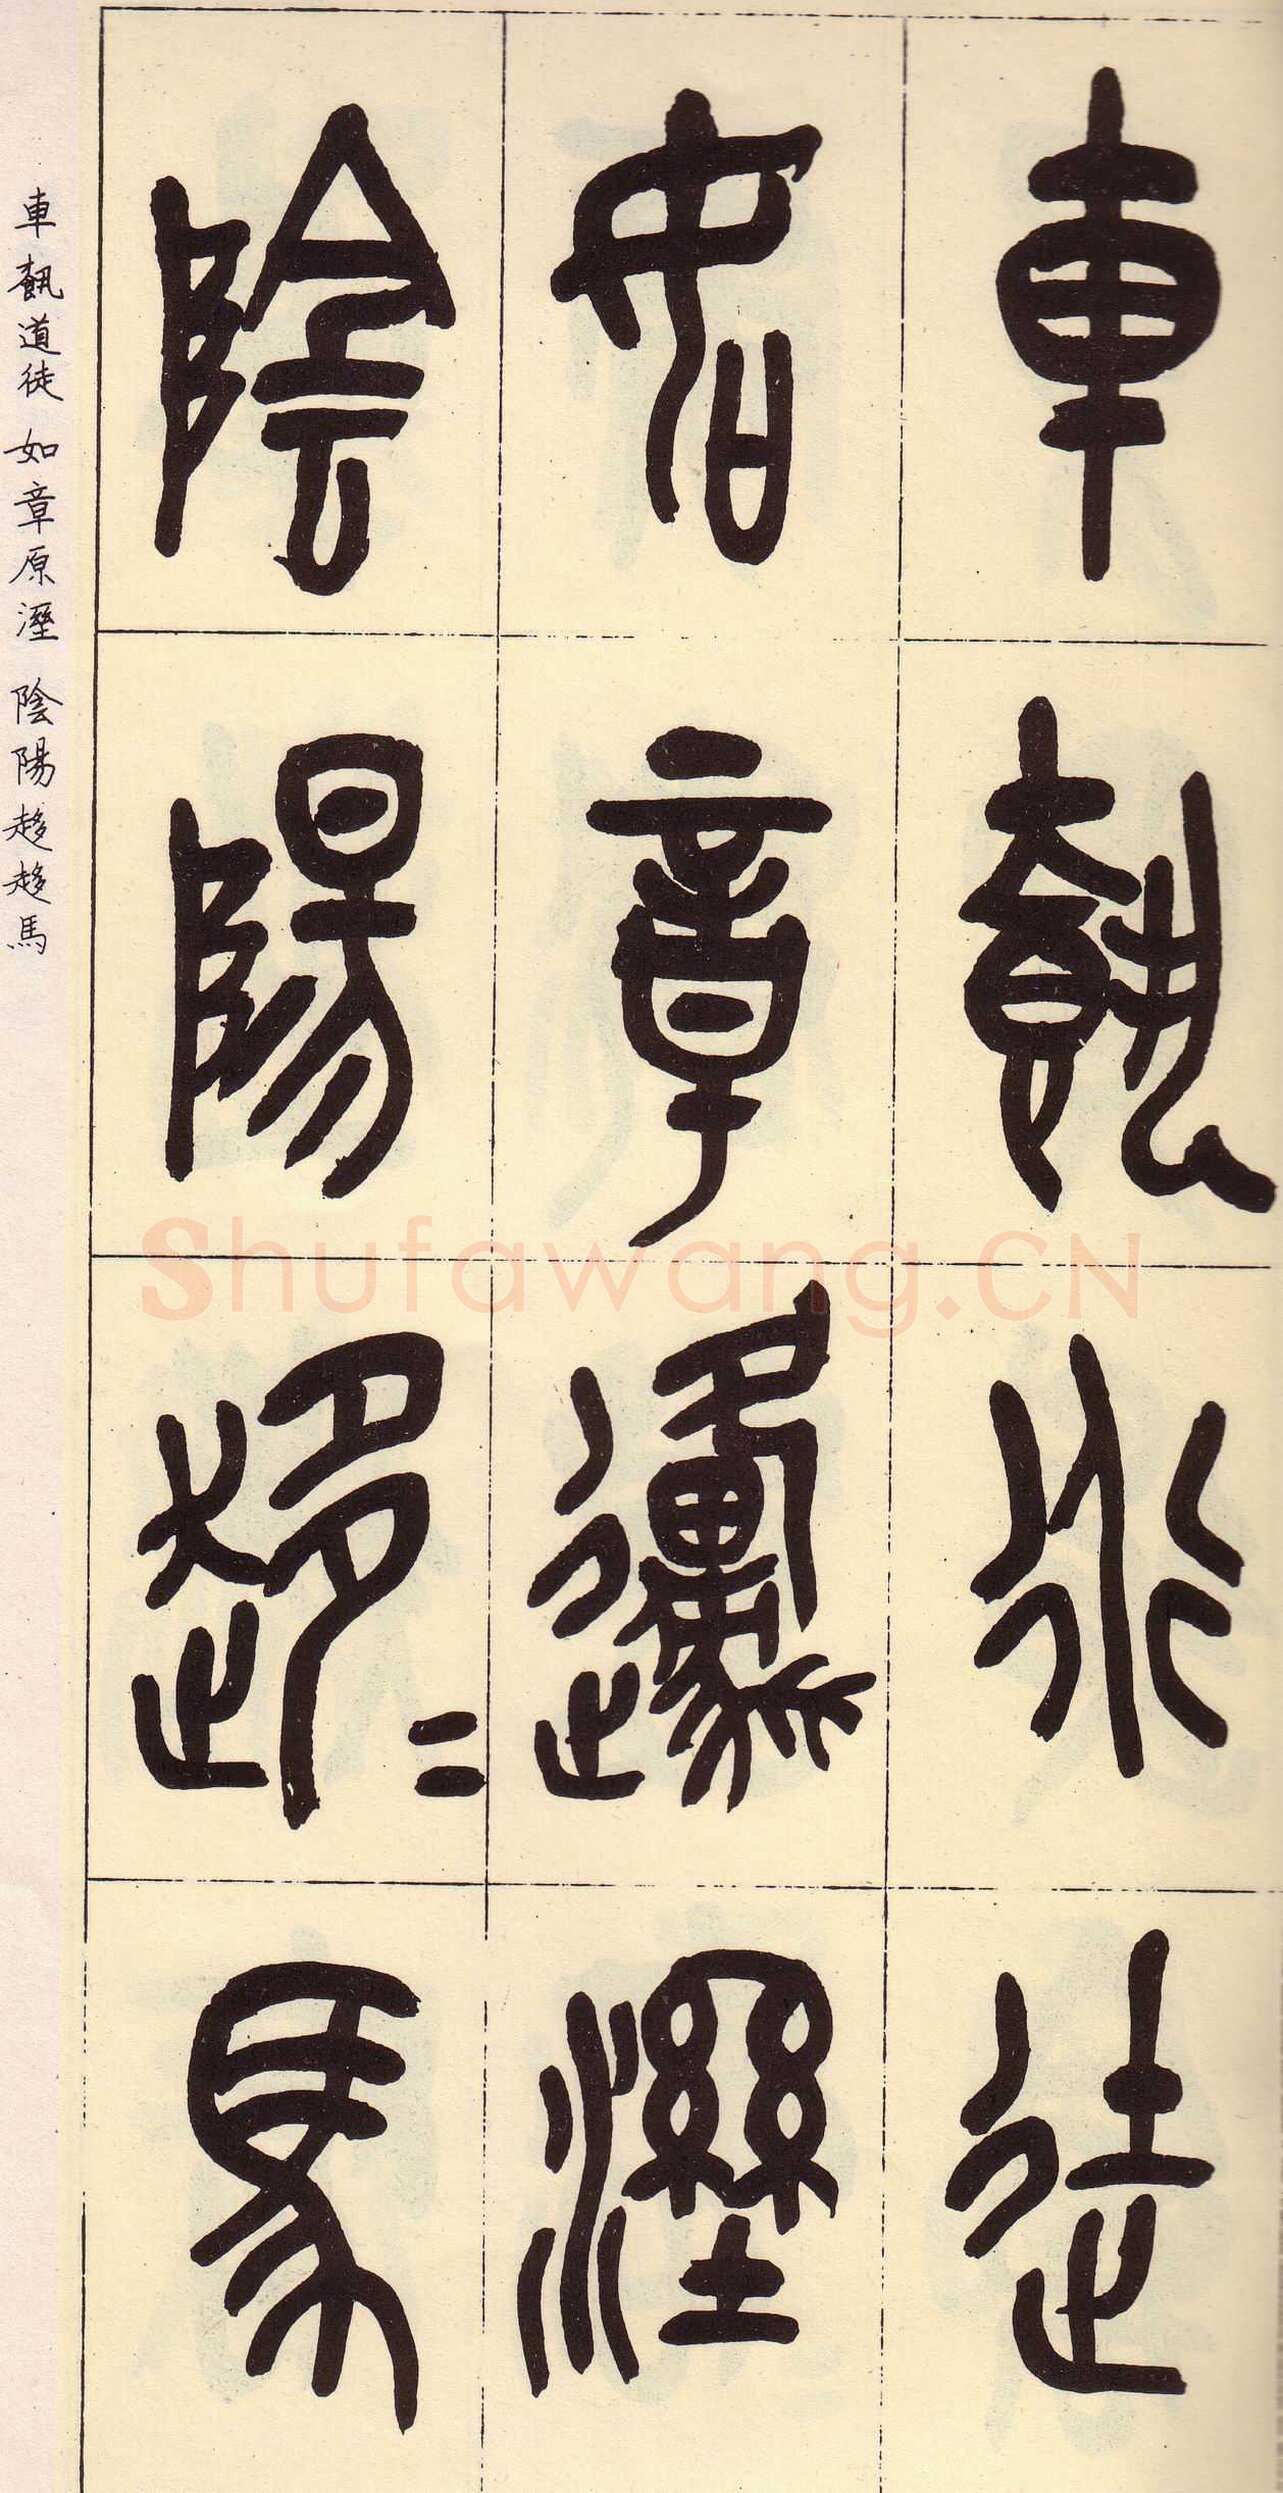 車行徒
如章邍溼
陰陽趍＝馬
車道徒 如章原溼 陰陽趍趍馬
Shufawang.CN